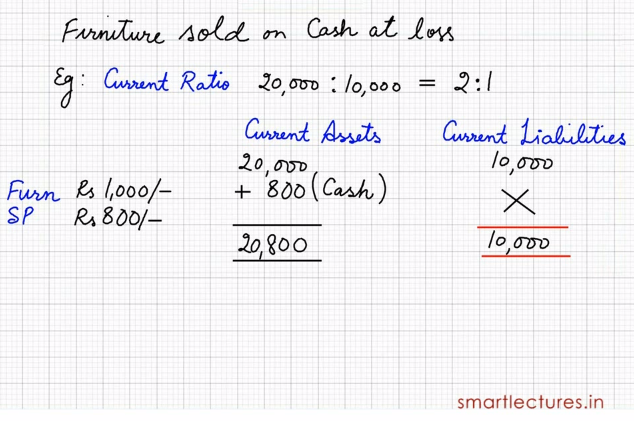 Furniture sold on Cash at loss
Eg: Current Ratio 20,000 : 10,000 = 2:1
Current Assets Current Liabilities
20,000 10,000
Furn Rs 1,000/- + 800 (Cash) ×
SP Rs 800/-
20,800 10,000
smartlectures.in